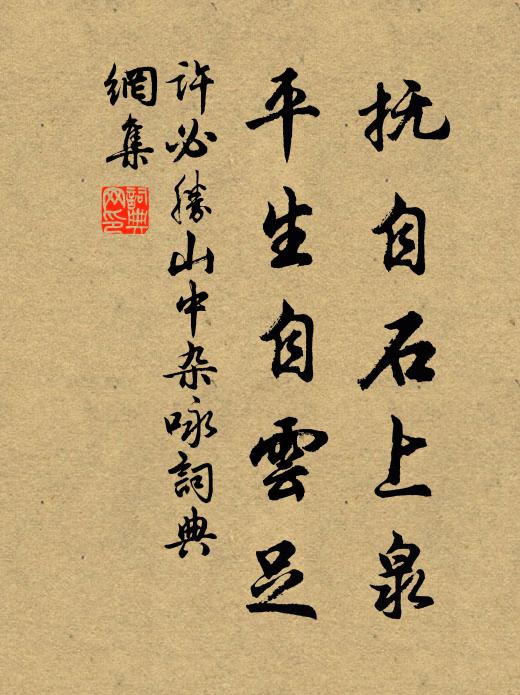 抚自石上泉
平生自雲足
许必勝山中杂咏詞典
網集
詞典
网印